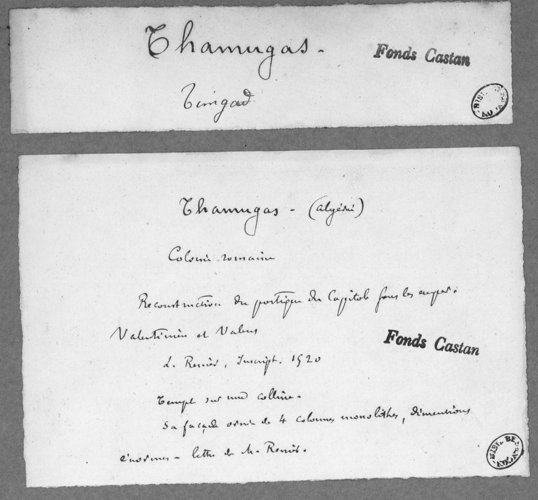 Thamugas -
Fonds Castan
Timgad
Thamugas - (Algérie)
Colonie romaine
Reconstruction du portique du Capitole sous les emper.
Valentinien et Valens
Fonds Castan
L. Renier, Inscript. 1520
Temple sur une colline.
Sa façade ornée de 4 colonnes monolithes, dimentions
énormes - lettre de M. Renier.